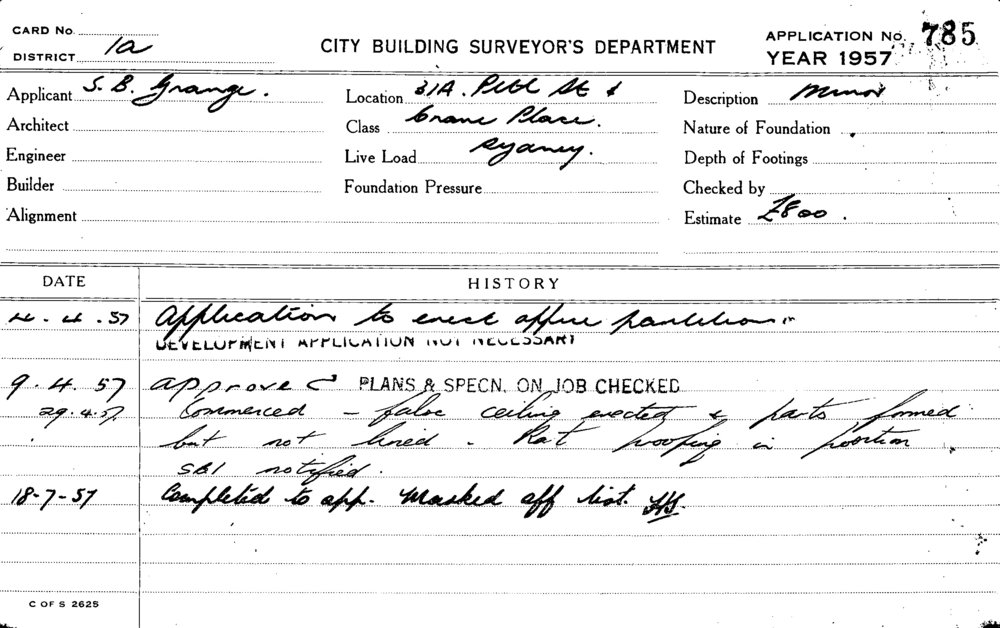 CARD No.
DISTRICT 1a
CITY BUILDING SURVEYOR'S DEPARTMENT
APPLICATION No. 785
YEAR 1957
Applicant S. B. Grange.
Location 31A. Pitt St &
Description Minor
Architect
Class Crane Place.
Nature of Foundation
Engineer
Live Load Sydney.
Depth of Footings
Builder
Foundation Pressure
Checked by
Alignment
Estimate £800.
DATE HISTORY
4.4.57 Application to erect office partitions
DEVELOPMENT APPLICATION NOT NECESSARY
9.4.57 approved PLANS & SPECN. ON JOB CHECKED
29.4.57 Commenced - false ceiling erected & parts formed
but not lined - Rat proofing in position
SBI notified.
18-7-57 Completed to app. Marked off list.
C OF S 2625